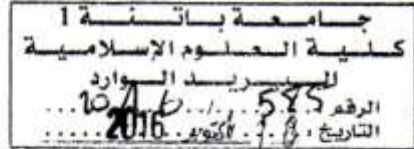 جامعة باتنة 1
كلية العلوم الإسلامية
البريد الوارد
الرقم: 585
التاريخ: أكتوبر 2016